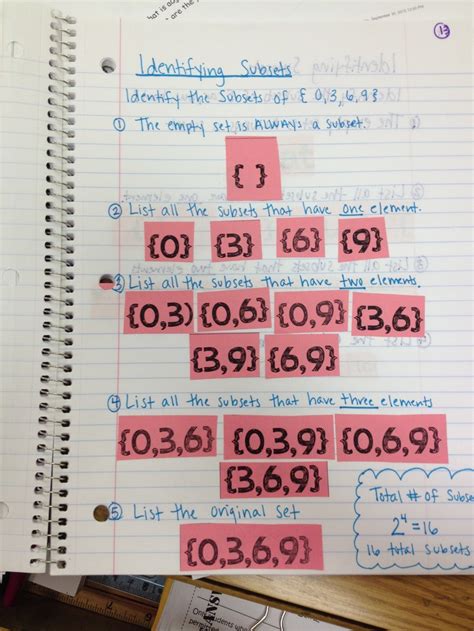 13
Identifying Subsets
Identify the Subsets of { 0,3,6,9}
① The empty set is ALWAYS a subset.
{ }
② List all the subsets that have one element.
{0} {3} {6} {9}
③ List all the subsets that have two elements.
{0,3) {0,6} {0,9} {3,6}
{3,9} {6,9}
④ List all the subsets that have three elements
{0,3,6} {0,3,9} {0,6,9}
{3,6,9}
⑤ List the original set
{0,3,6,9}
Total # of Subse
2⁴=16
16 total subsets